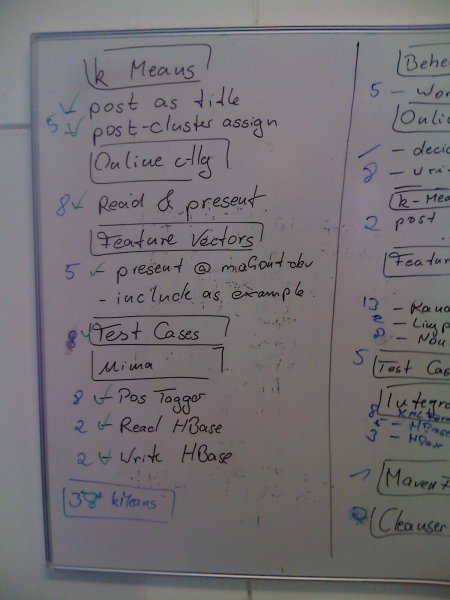 k Means
post as title
5 post-cluster assign
Online cllg
8 Read & present
Feature Vectors
5 - present @ mahout dev
- include as example
8 Test Cases
Mima
8 Pos Tagger
2 - Read HBase
2 Write HBase
38 kMeans
5 - Wor
Onlin
- decid
8 - writ
k-Mea
2 post
Featur
13
8 - Nou
5 Test Cas
Integra
5 - HBase
3 - HBase
Maven
Cleanser